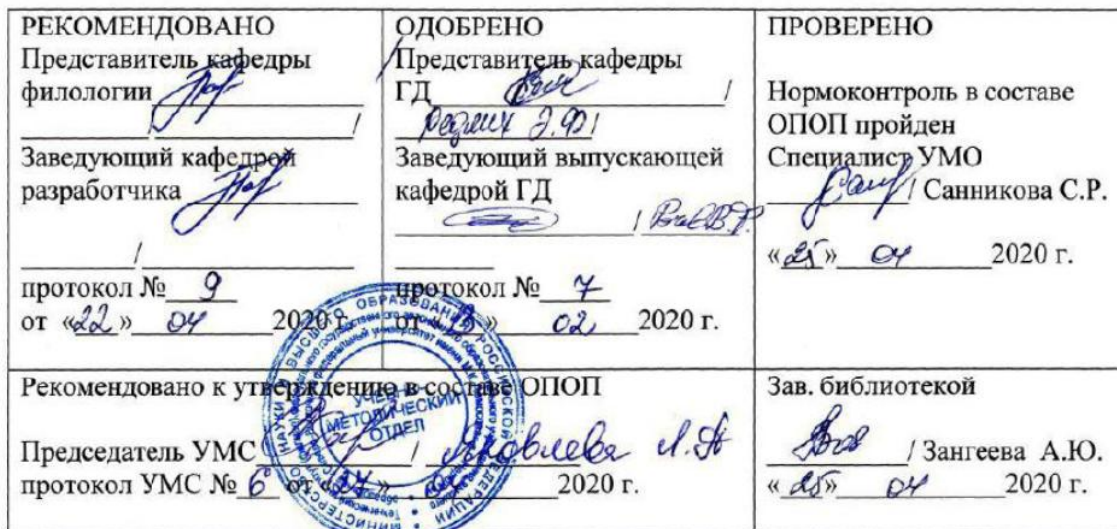 РЕКОМЕНДОВАНО
Представитель кафедры
филологии
/ /
Заведующий кафедрой
разработчика
/
протокол № 9
от «22» 04 2020 г.
ОДОБРЕНО
Представитель кафедры
ГД /
/
Заведующий выпускающей
кафедрой ГД
/
протокол № 7
от « » 02 2020 г.
ПРОВЕРЕНО
Нормоконтроль в составе
ОПОП пройден
Специалист УМО
/ Санникова С.Р.
«25» 04 2020 г.
Рекомендовано к утверждению в составе ОПОП
Председатель УМС / Яковлева
протокол УМС № 6 от «27» 2020 г.
УЧЕБНО-
МЕТОДИЧЕСКИЙ
ОТДЕЛ
Зав. библиотекой
/ Зангеева А.Ю.
«25» 04 2020 г.